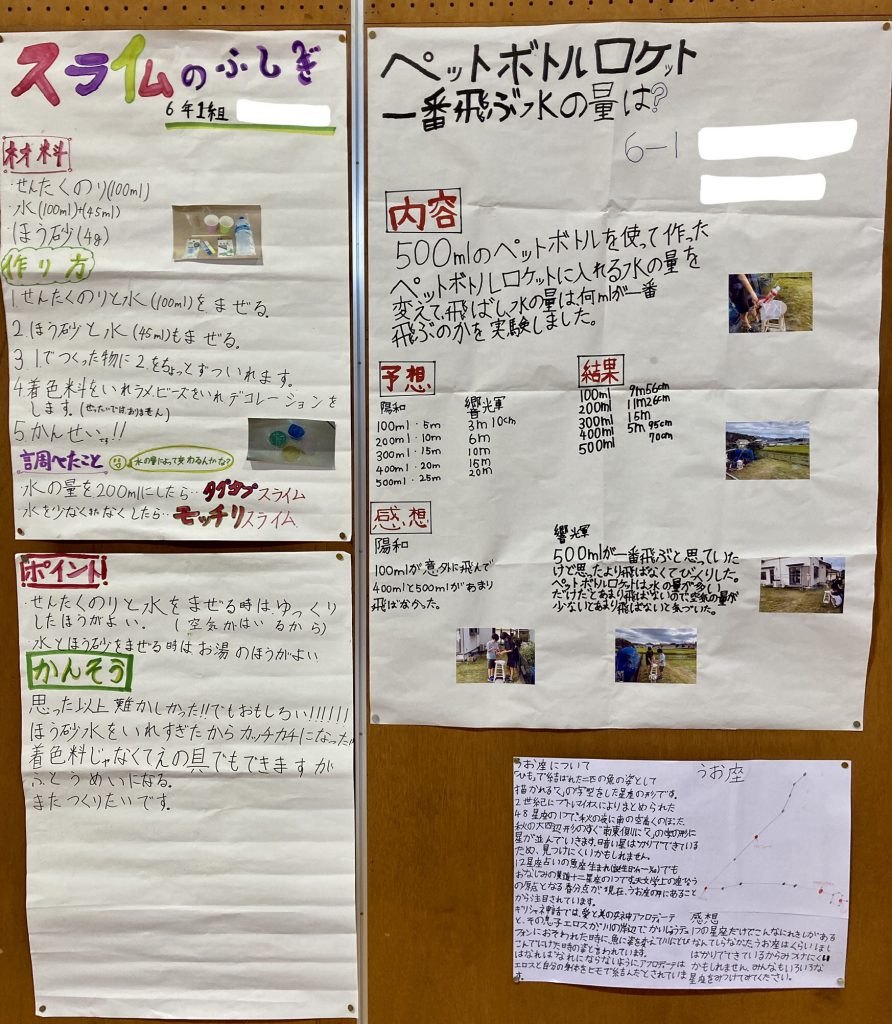 スライムのふしぎ
6年1組
材料
・せんたくのり(100ml)
・水(100ml)+(45ml)
・ほう砂(4g)
作り方
1.せんたくのりと水(100ml)をまぜる。
2.ほう砂と水(45ml)もまぜる。
3.1でつくった物に2.をちょっとずついれます。
4.着色料をいれラメ、ビーズをいれデコレーションを
します。(ぜったいではありません)
5.かんせいです!!
調べたこと 水の量によって変わるんかな?
水の量を200mlにしたら…タプタプスライム
水を少なくしたら…モッチリスライム
ポイント!
・せんたくのりと水をまぜる時はゆっくり
したほうがよい。(空気がはいるから)
・水とほう砂をまぜる時はお湯のほうがよい
かんそう
思った以上難かしかった!!でもおもしろい!!!!!!
ほう砂水をいれすぎたからカッチカチになった
着色料じゃなくてえの具でもできますが
ふとうめいになる。
またつくりたいです。
ペットボトルロケット
一番飛ぶ水の量は?
6-1
内容
500mlのペットボトルを使って作った
ペットボトルロケットに入れる水の量を
変えて飛ばし、水の量は、何mlが一番
飛ぶのかを実験しました。
予想
陽和 響光輝
100ml・5m 3m10cm
200ml・10m 6m
300ml・15m 10m
400ml・20m 15m
500ml・25m 20m
結果
100ml 9m56cm
200ml 11m26cm
300ml 15m
400ml 5m95cm
500ml 70cm
感想
陽和
100mlが意外に飛んで
400mlと500mlがあまり
飛ばなかった。
響輝
500mlが一番飛ぶと思っていた
けど思ったより飛ばなくてびっくりした。
ペットボトルロケットは水の量が多い
だけだとあまり飛ばないので空気の量が
少ないとあまり飛ばないと気づいた。
うお座について
「ひも」で結ばれた二匹の魚の姿として
描かれる「く」の字型をした星座の形です。
2世紀にプトレマイオスによりまとめられた
48星座の1つで、秋の夜に南の空高くのぼった
秋の大四辺形のすぐ南東側に「く」の字の形に
星が並んでいます。暗い星ばかりでできている
ため、見つけにくいかもしれません。
12星座占いの魚座生まれ
おなじみの黄道十二星座の1つです。天文学上の
の原点となる春分点が現在、うお座の中にあること
から注目されています。
ギリシャ神話では、愛と美の女神アフロディーテ
と、その息子エロスが川の岸辺でかいぶつテュ
フォンにおそわれた時に、魚に姿を変えて川にとび
こんでにげた時の姿と言われています。
はなればなれにならないようにアフロディーテは
エロスと自分の身体をヒモで結んだとされていま
す
うお座
感想
1つの星座だけでこんなにれきしがある
なんてしらなかった。うお座はくらいほし
ばかりでできているからみつけにくい
かもしれません。みんなもいろいろな
星座をみつけてみてください。